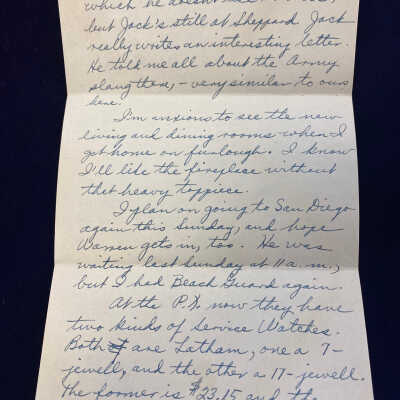 which he doesn't
but Jack's still at Sheppard. Jack
really writes an interesting letter.
He told me all about the Army
slang there, - very similar to ours
here.
I'm anxious to see the new
living and dining rooms when I
get home on furlough. I know
I'll like the fireplace without
that heavy toppiece.
I plan on going to San Diego
again this Sunday, and hope
Warren gets in, too. He was
waiting last Sunday at 11 a.m.,
but I had Beach Guard again.
At the P.X. now they have
two kinds of Service Watches.
Both are Latham, one a 7-
jewell, and the other a 17-jewell.
The former is $23.15 and the